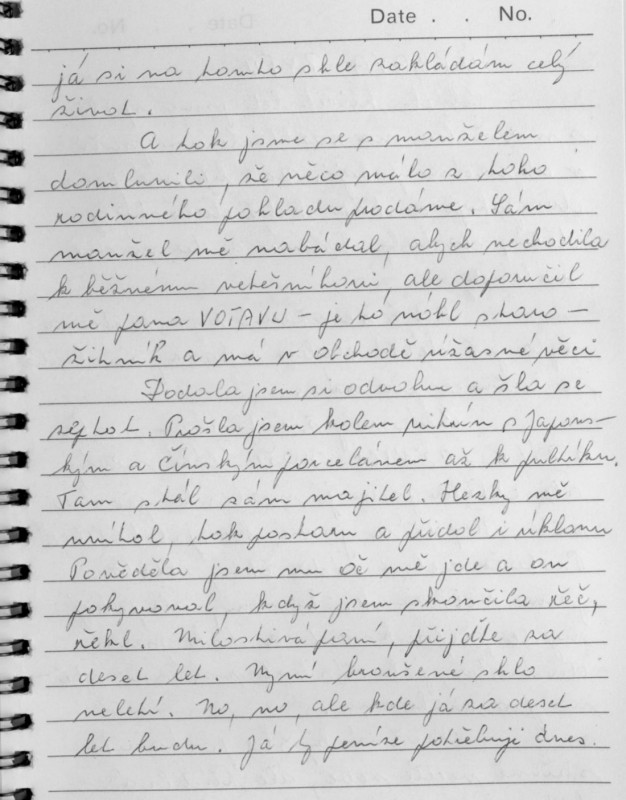 Date . . No.
já si na tomto skle zakládám celý
život.
A tak jsme se s manželem
domluvili, že něco málo z toho
rodinného pokladu prodáme. Sám
manžel mě nabádal, abych nechodila
k běžnému vetešníkovi, ale doporučil
mě pana VOTAVU – je to náhl staro-
žitník a má v obchodě úžasné věci
Dodala jsem si odvahu a šla se
zeptat. Prošla jsem kolem vitrín s Japons-
kým a Čínským porcelánem až k pultíku.
Tam stál sám majitel. Hezky mě
uvítal, tak postaru a přidal i úklonu
Pověděla jsem mu oč mě jde a on
pokyvoval, když jsem skončila řeč,
řekl. Milostivá paní, přijďte za
deset let. Nyní broušené sklo
neletí. No, no, ale kde já za deset
let budu. Já ty peníze potřebuji dnes.